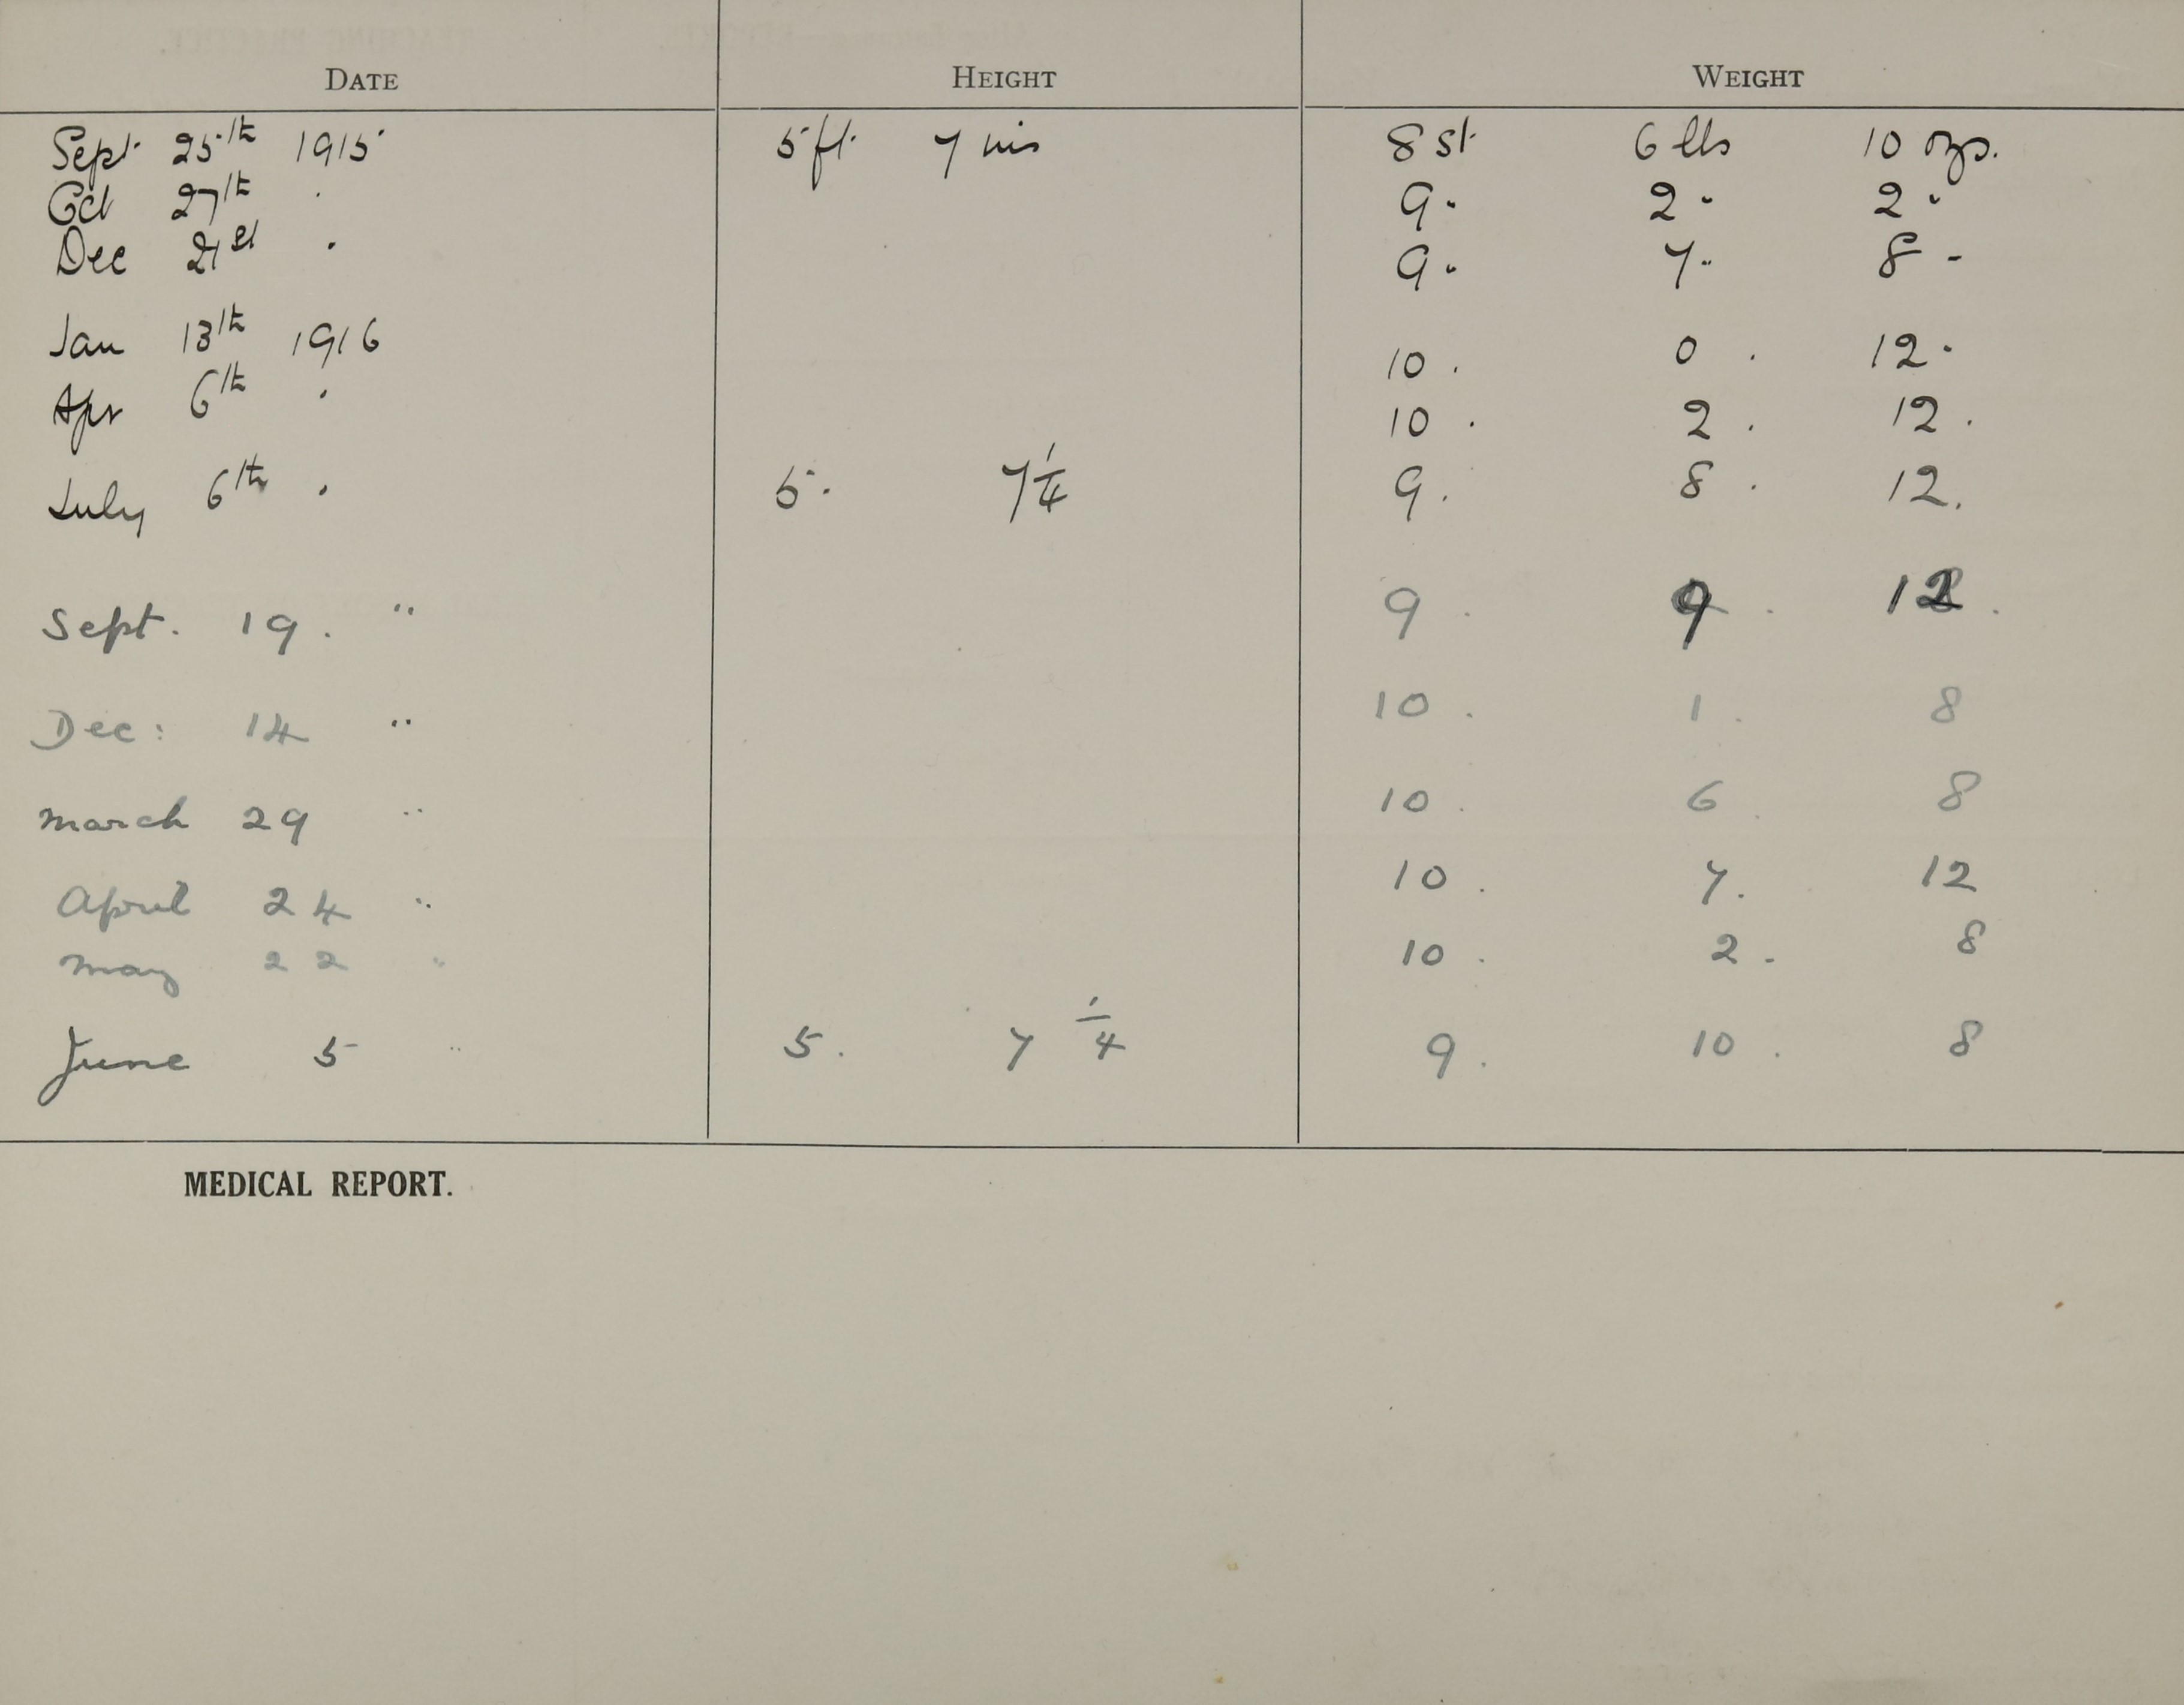 DATE HEIGHT WEIGHT
Sept. 25th 1915 5 ft. 7 ins 8 st 6 lbs 10 ozs.
Oct 27th " 9 " 2 " 2 "
Dec 21st " 9 " 7 " 8 "
Jan 13th 1916 10 . 0 . 12 .
Apr 6th " 10 . 2 . 12 .
July 6th " 5 . 7 1/4 9 . 8 . 12 .
Sept. 19 . " 9 . 9 . 12 .
Dec: 14 " 10 . 1 . 8
March 29 " 10 . 6 . 8
April 24 " 10 . 7 . 12
May 22 " 10 . 2 . 8
June 5 " 5 . 7 1/4 9 . 10 . 8
MEDICAL REPORT.